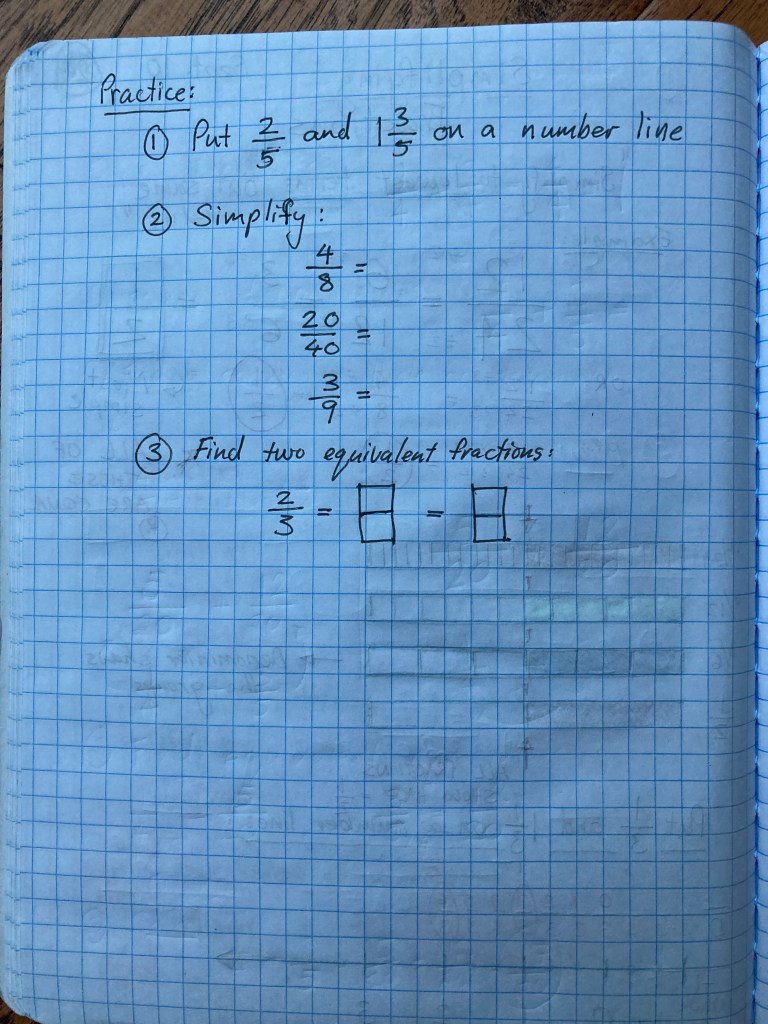 Practice:
① Put 2/5 and 1 3/5 on a number line
② Simplify:
4/8 =
20/40 =
3/9 =
③ Find two equivalent fractions:
2/3 = □/□ = □/□